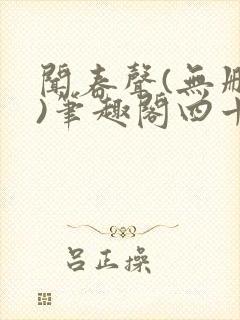 聞春聲(無刪
)筆趣閣四十
呂正操